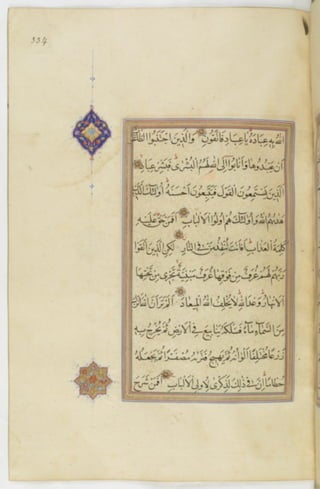 334
الله به عباده يا عباد فاتقون والذين اجتنبوا الطاغوت
ان يعبدوها وانابوا الى الله لهم البشرى فبشر عباد
الذين يستمعون القول فيتبعون احسنه اولئك الذين
هديهم الله واولئك هم اولوا الالباب افمن حق عليه
كلمة العذاب افانت تنقذ من في النار لكن الذين اتقوا
ربهم لهم غرف من فوقها غرف مبنية تجري من تحتها
الانهار وعد الله لا يخلف الله الميعاد الم تر ان الله انزل
من السماء ماء فسلكه ينابيع في الارض ثم يخرج به
زرعا مختلفا الوانه ثم يهيج فتريه مصفرا ثم يجعله
حطاما ان في ذلك لذكرى لاولي الالباب افمن شرح